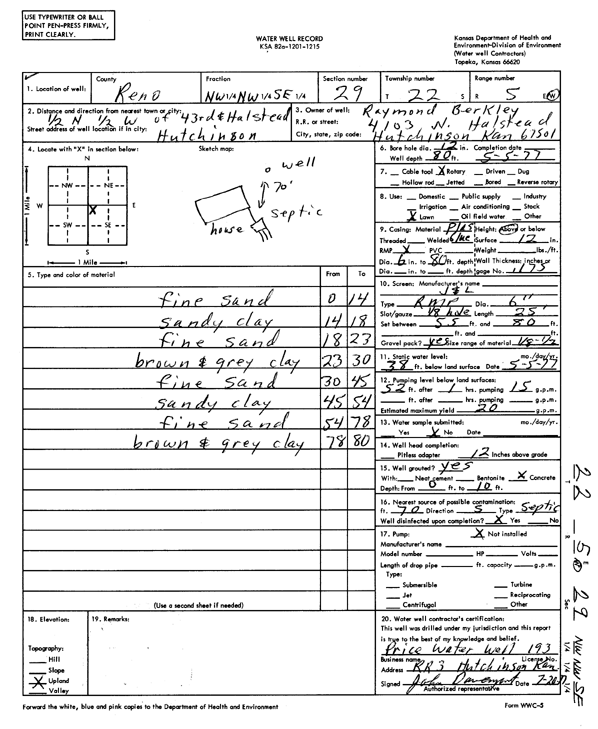 USE TYPEWRITER OR BALL
POINT PEN-PRESS FIRMLY,
PRINT CLEARLY.
WATER WELL RECORD
KSA 82a-1201-1215
Kansas Department of Health and
Environment-Division of Environment
(Water well Contractors)
Topeka, Kansas 66620
1. Location of well:
County
Reno
Fraction
NW 1/4 NW 1/4 SE 1/4
Section number
29
Township number
T 22 S
Range number
R 5 E/W
2. Distance and direction from nearest town or city:
1/2 N 1/2 W of 43rd & Halstead
Street address of well location if in city:
Hutchinson
3. Owner of well: Raymond Berkley
R.R. or street: 4103 N. Halstead
City, state, zip code: Hutchinson Kan 67501
4. Locate with "X" in section below:
Sketch map:
N
NW NE
W X E
SW SE
S
1 Mile
1 Mile
o well
70'
septic
house
5. Type and color of material
From To
fine sand 0 14
sandy clay 14 18
fine sand 18 23
brown & grey clay 23 30
fine sand 30 45
sandy clay 45 54
fine sand 54 78
brown & grey clay 78 80
(Use a second sheet if needed)
6. Bore hole dia. 12 in. Completion date
Well depth 80 ft. 5-5-77
7. Cable tool X Rotary Driven Dug
Hollow rod Jetted Bored Reverse rotary
8. Use: Domestic Public supply Industry
Irrigation Air conditioning Stock
X Lawn Oil field water Other
9. Casing: Material Plas Height: Above or below
Threaded Welded glue Surface 12 in.
RMP X PVC Weight lbs./ft.
Dia. 6 in. to 80 ft. depth Wall Thickness: inches or
Dia. in. to ft. depth gage No.
10. Screen: Manufacturer's name
Type RMP Dia. 6"
Slot/gauze 1/8 hole Length 25'
Set between 55 ft. and 80 ft.
ft. and ft.
Gravel pack? yes Size range of material 1/8-1/2
11. Static water level: mo./day/yr.
38 ft. below land surface Date 5-5-77
12. Pumping level below land surfaces:
52 ft. after 1 hrs. pumping 15 g.p.m.
ft. after hrs. pumping g.p.m.
Estimated maximum yield 20 g.p.m.
13. Water sample submitted: mo./day/yr.
Yes X No Date
14. Well head completion:
Pitless adapter 12 Inches above grade
15. Well grouted? yes
With: Neat cement Bentonite X Concrete
Depth: From 0 ft. to 10 ft.
16. Nearest source of possible contamination:
ft. 70 Direction S Type Septic
Well disinfected upon completion? X Yes No
17. Pump: X Not installed
Manufacturer's name
Model number HP Volts
Length of drop pipe ft. capacity g.p.m.
Type:
Submersible Turbine
Jet Reciprocating
Centrifugal Other
18. Elevation:
Topography:
Hill
Slope
X Upland
Valley
19. Remarks:
20. Water well contractor's certification:
This well was drilled under my jurisdiction and this report
is true to the best of my knowledge and belief.
Price Water Well 193
Business name License No.
Address RR3 Hutchinson Kan
Signed John Davenport Date
Authorized representative
Forward the white, blue and pink copies to the Department of Health and Environment
Form WWC-5
T 22 R 5 Sec 29 NW NW SE
1/4 1/4 1/4